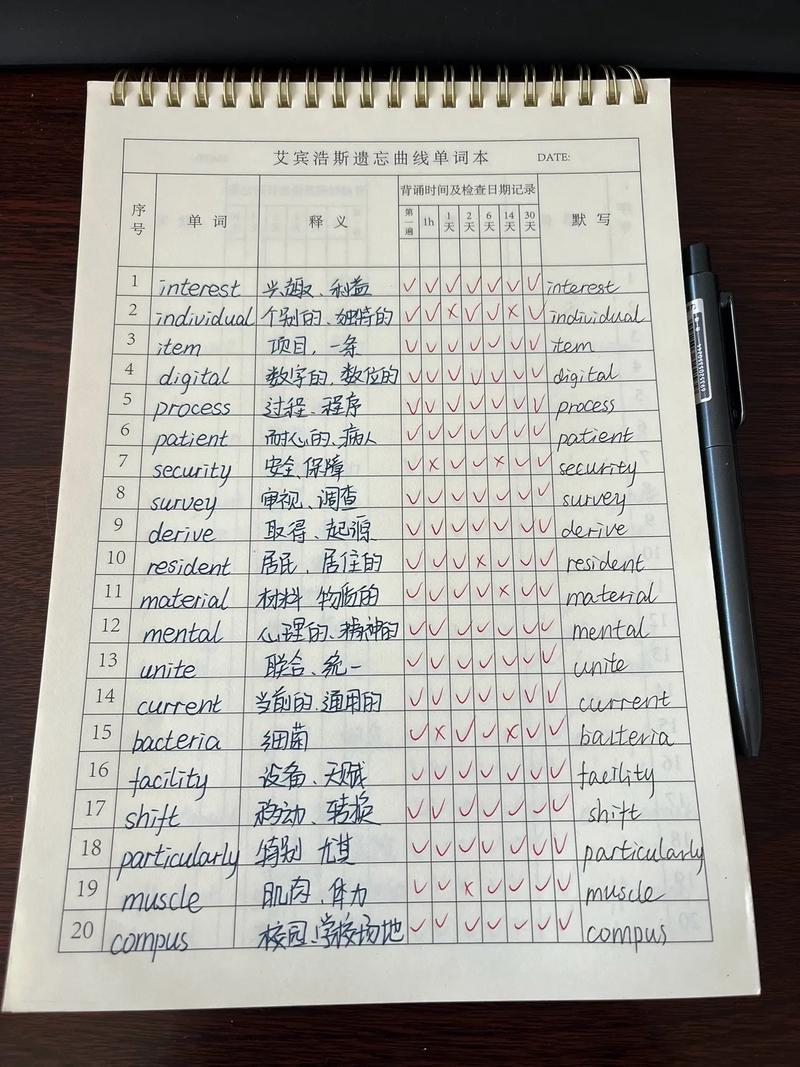 艾宾浩斯遗忘曲线单词本 DATE:
序号 单词 释义 背诵时间及检查日期记录 默写
第一遍 1h 1天 2天 6天 14天 30天
1 interest 兴趣、利益 ✓ ✓ ✓ ✓ ✓ ✓ ✓ interest
2 individual 个别的、独特的 ✓ ✓ × ✓ ✓ × ✓ individual
3 item 项目，一条 ✓ ✓ ✓ ✓ ✓ ✓ ✓ item
4 digital 数字的，数位的 ✓ ✓ ✓ ✓ ✓ ✓ ✓ digital
5 process 过程、程序 ✓ ✓ ✓ ✓ ✓ ✓ ✓ process
6 patient 耐心的、病人 ✓ ✓ ✓ ✓ ✓ ✓ ✓ patient
7 security 安全、保障 ✓ × ✓ ✓ × ✓ ✓ security
8 survey 审视、调查 ✓ ✓ ✓ ✓ ✓ ✓ ✓ survey
9 derive 取得、起源 ✓ ✓ ✓ ✓ ✓ ✓ ✓ derive
10 resident 居民、居住的 ✓ ✓ ✓ × ✓ ✓ ✓ resident
11 material 材料 物质的 ✓ ✓ ✓ ✓ × ✓ ✓ material
12 mental 心理的、精神的 ✓ ✓ ✓ ✓ ✓ ✓ ✓ mental
13 unite 联合、统一 ✓ ✓ ✓ ✓ ✓ ✓ ✓ unite
14 current 当前的、通用的 ✓ ✓ ✓ ✓ ✓ ✓ ✓ current
15 bacteria 细菌 ✓ × ✓ ✓ × ✓ ✓ bacteria
16 facility 设备、天赋 ✓ ✓ ✓ ✓ ✓ ✓ ✓ facility
17 shift 移动、转换 ✓ ✓ ✓ ✓ ✓ ✓ ✓ shift
18 particularly 特别 尤其 ✓ ✓ ✓ ✓ ✓ ✓ ✓ particularly
19 muscle 肌肉、体力 ✓ ✓ × ✓ ✓ ✓ ✓ muscle
20 compus 校园、学校场地 ✓ ✓ ✓ ✓ ✓ ✓ ✓ compus